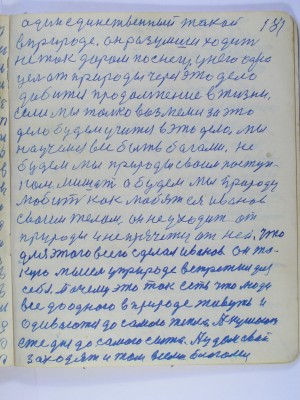 один единственный такой 181
в природе, он разумеи ходит
не так даром по снегу, у него одно
через это дело
добится продолжение в жизни,
если мы только возмемся за это
дело будем учится в это дело, мы
научимся все быть богами, не
будем мы природы своим поступ-
ком мешать а будем мы природу
любить как любится иванов
своим телом, он не уходит от
природы и не прячится от ней, что
для этого всего сделал иванов. Он та-
кую мысль у природе встретил для
себя. Почему это так есть что люди
все до одного в природе живут и
одиваются до самого тепла. А кушают
еже дня до самого сыта. А у дом свой
заходят и там всем